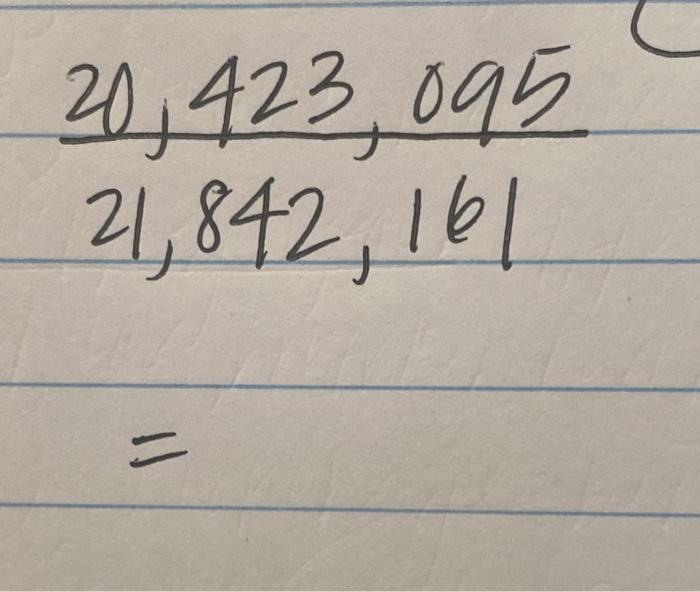 20,423,095
21,842,161
=